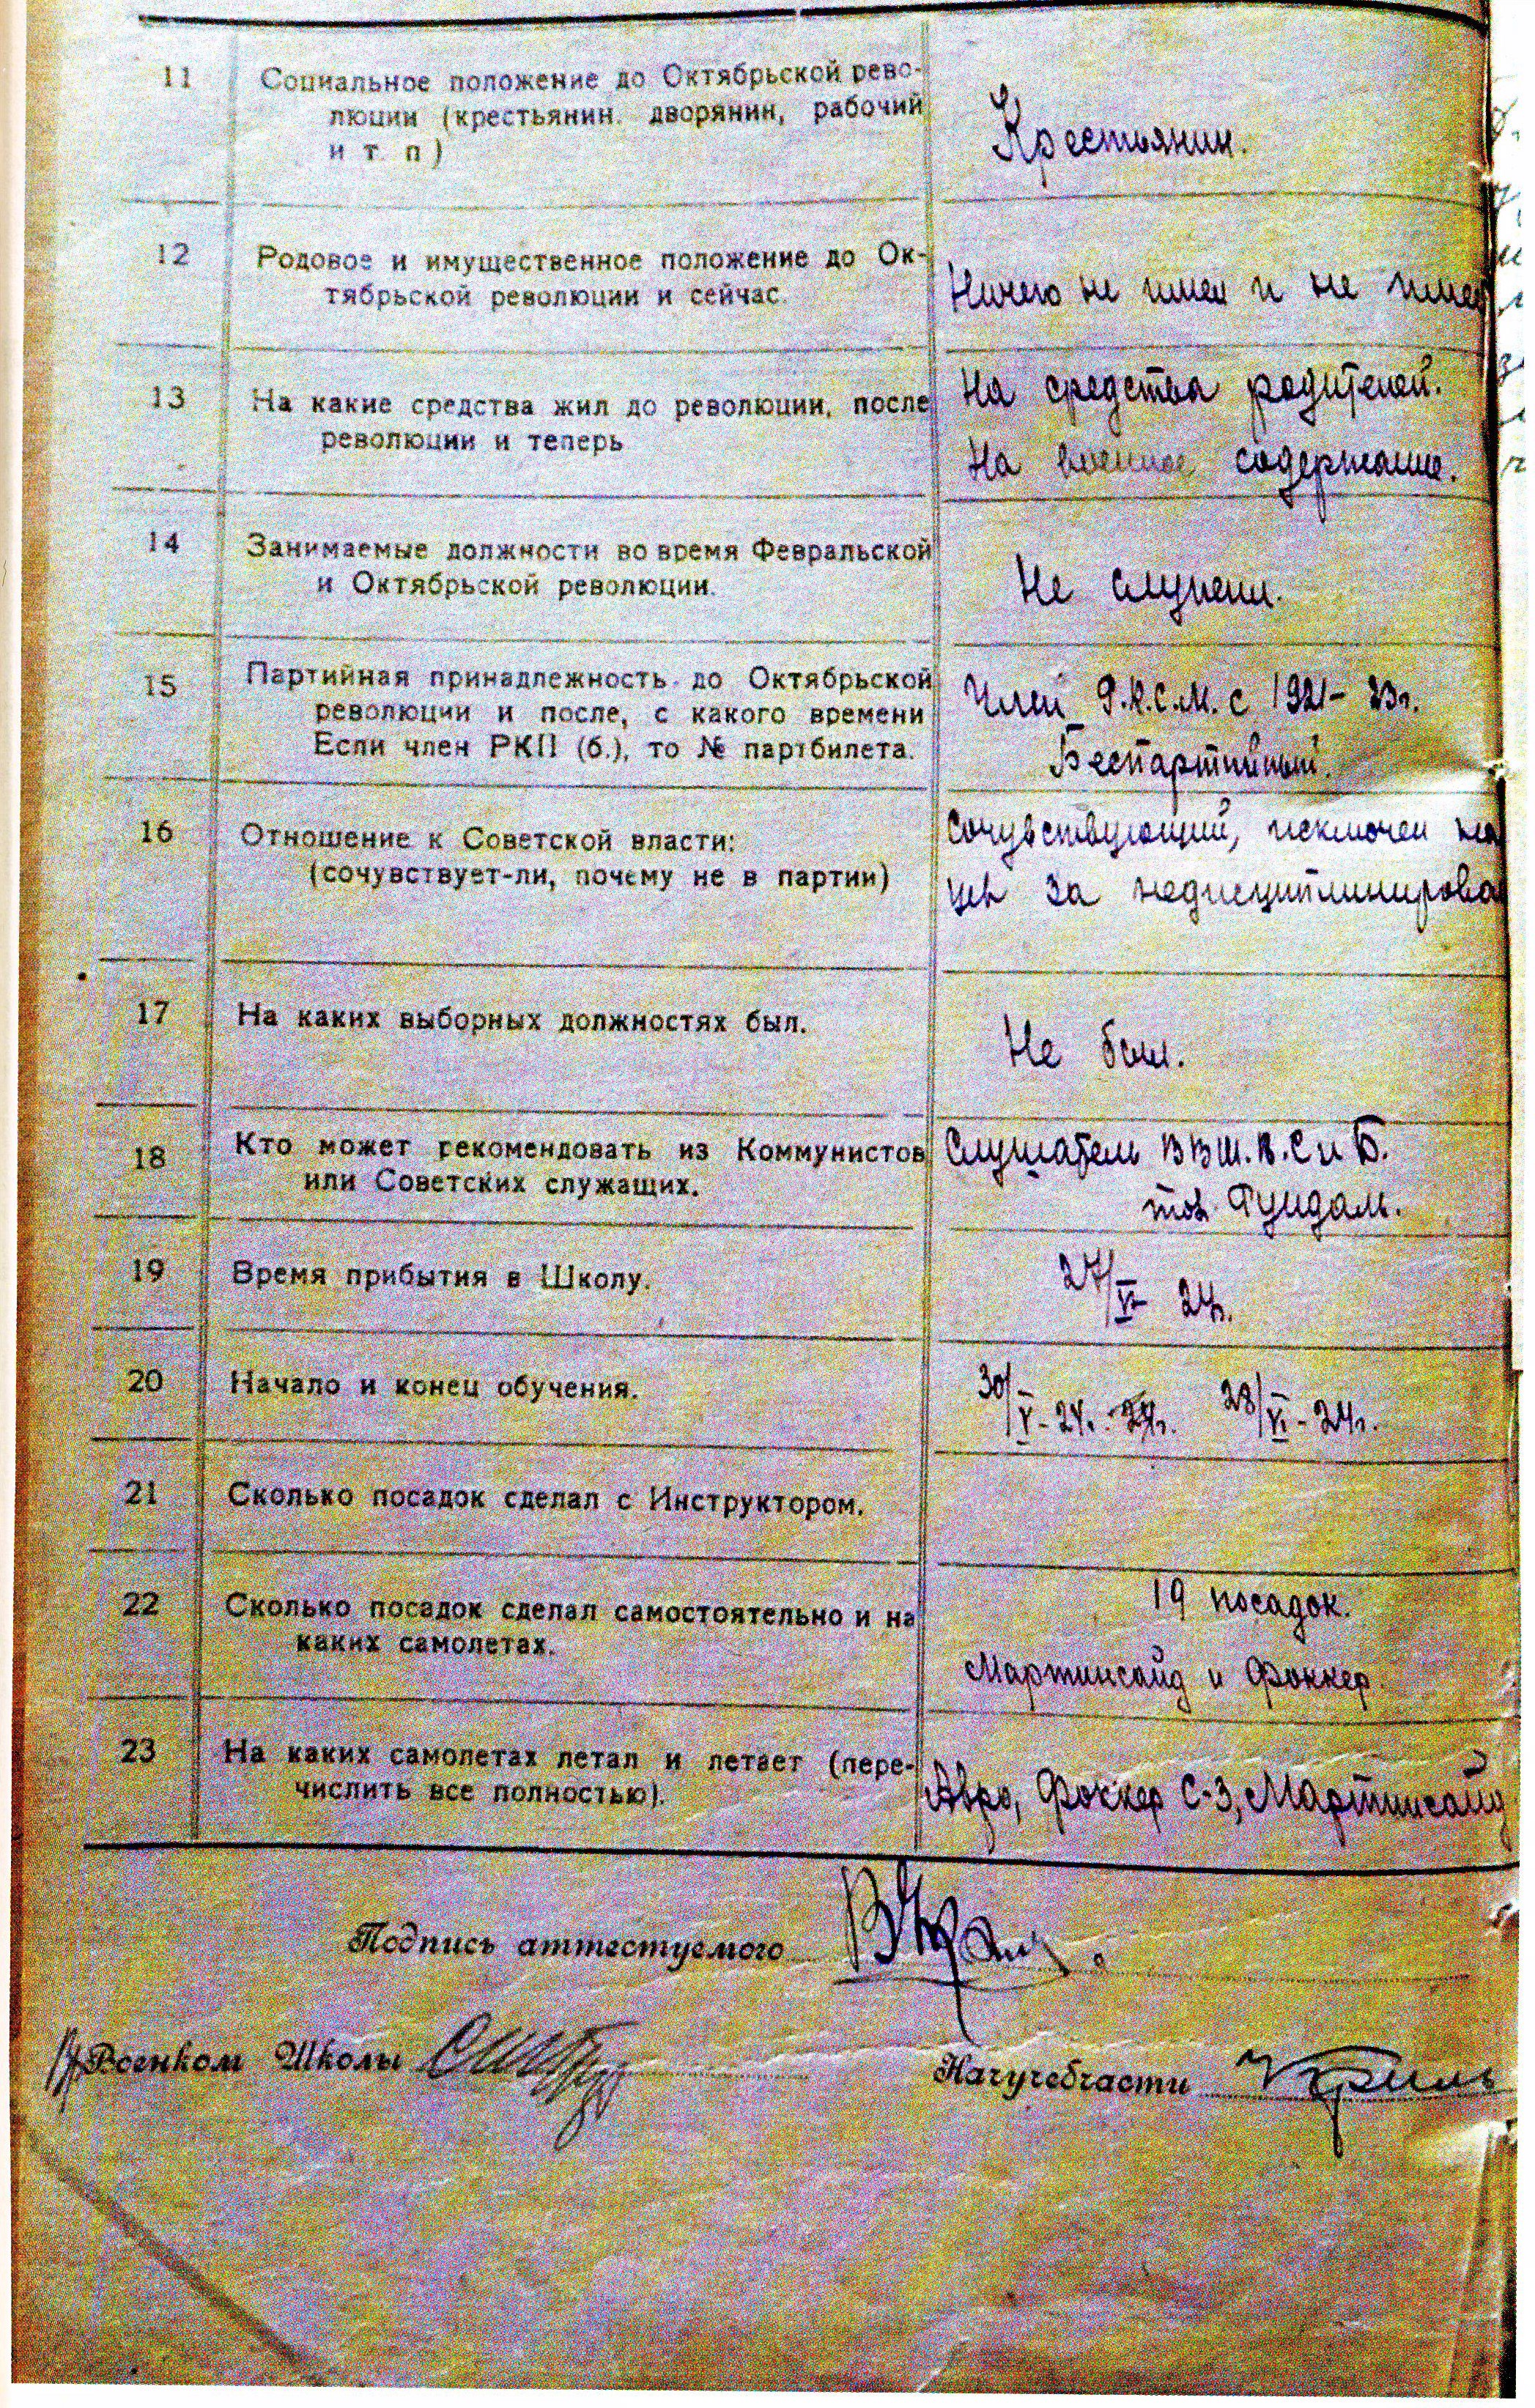 11 Социальное положение до Октябрьской рево-
люции (крестьянин. дворянин, рабочий
и т. п)
Крестьянин.
12 Родовое и имущественное положение до Ок-
тябрьской революции и сейчас.
Ничего не имел и не имею
13 На какие средства жил до революции, после
революции и теперь
На средства родителей.
На военное содержание.
14 Занимаемые должности во время Февральской
и Октябрьской революции.
Не служил.
15 Партийная принадлежность до Октябрьской
революции и после, с какого времени
Если член РКП (б.), то № партбилета.
Член Р.К.С.М. с 1921-23г.
Беспартийный.
16 Отношение к Советской власти:
(сочувствует-ли, почему не в партии)
Сочувствующий, исключен
за недисциплинирова
17 На каких выборных должностях был.
Не был.
18 Кто может рекомендовать из Коммунистов
или Советских служащих.
Слушатель ВВШ.В.С и Б.
тов. Гундаль.
19 Время прибытия в Школу.
27/V 24г.
20 Начало и конец обучения.
30/V-24г. 28/VI-24г.
21 Сколько посадок сделал с Инструктором.
22 Сколько посадок сделал самостоятельно и на
каких самолетах.
19 посадок.
Мартинсайд и Фоккер.
23 На каких самолетах летал и летает (пере-
числить все полностью).
Авро, Фоккер С-3, Мартинсайд
Подпись аттестуемого
Военком Школы
Начучебчасти